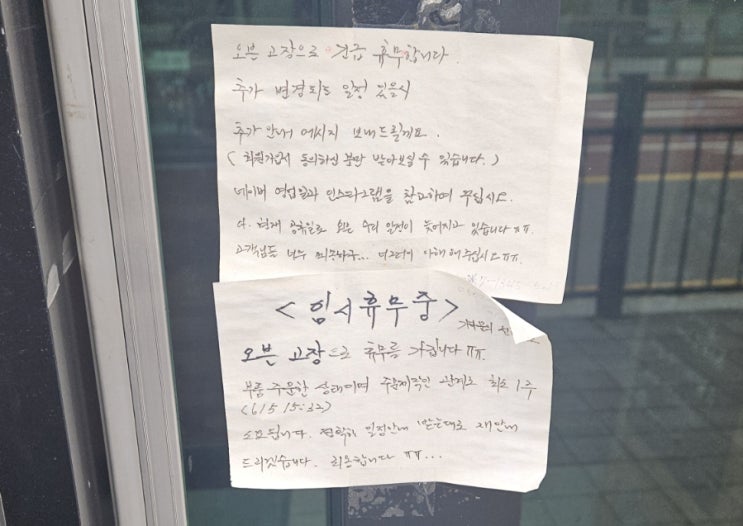 오븐 고장으로 긴급 휴무합니다.
추가 변경되는 일정 있을시
추가 안내 메시지 보내드릴께요.
( 회원가입시 동의하신 분만 받아보실 수 있습니다. )
네이버 영업일과 인스타그램을 참고하여 주십시오.
현재 공휴일로 오븐 수리 일정이 늦어지고 있습니다 ㅠㅠ.
고객님들 너무 죄송하구... 너그러이 이해해주십시오 ㅠㅠ.
<임시휴무중>
오븐 고장으로 휴무를 가집니다 ㅠㅠ.
부품 주문한 상태이며 주문제작인 관계로 최소 1주
(6/5 15:32)
소요됩니다. 정확히 일정안내 받는대로 재안내
드리겠습니다. 죄송합니다 ㅠㅠ...